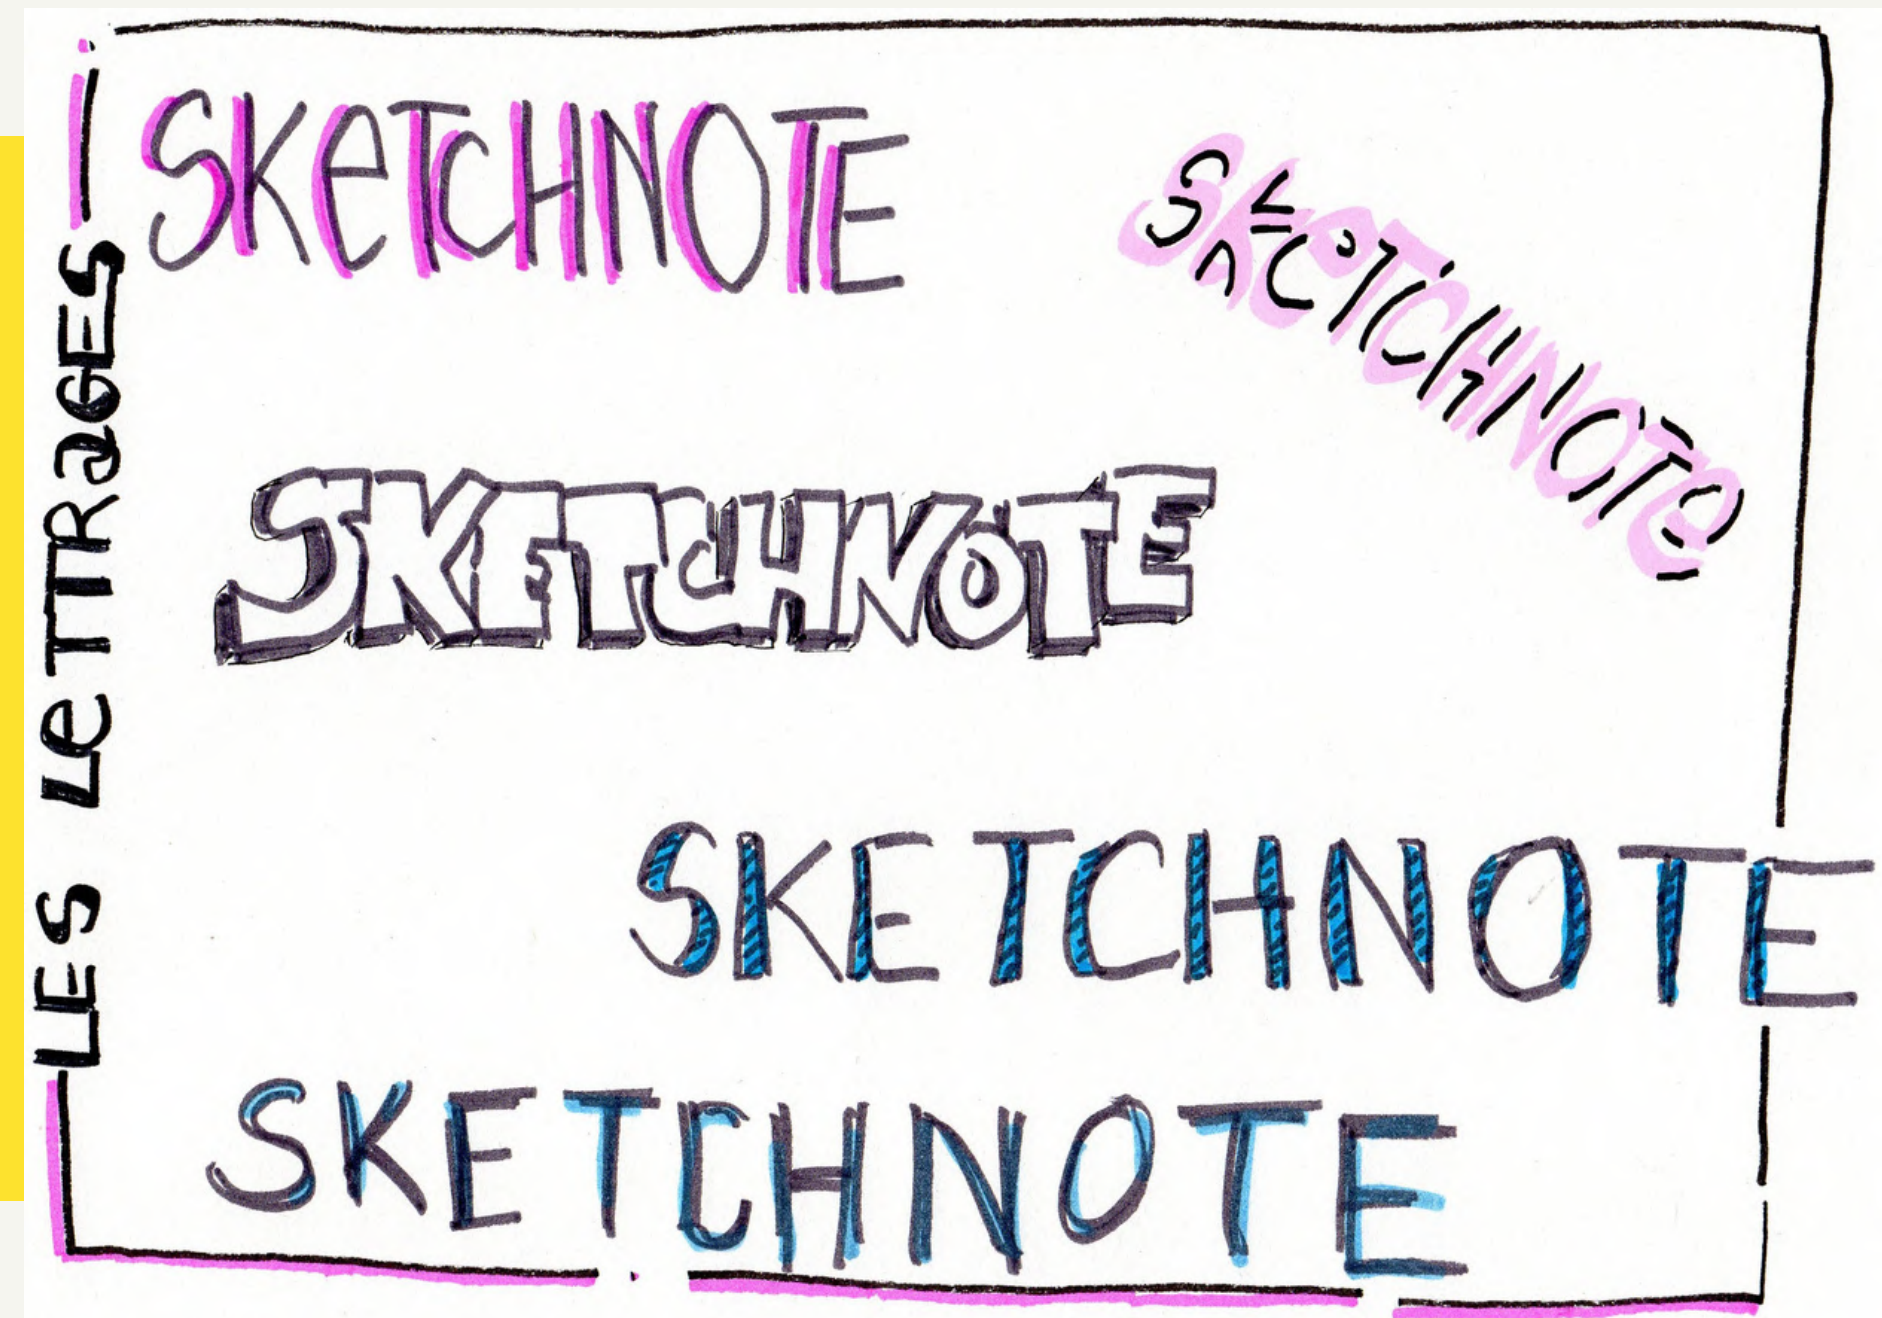 LES LeTTRaGES
SKeTCHNOTE
SKeTCHNOTe
SKETCHNOTE
SKETCHNOTE
SKETCHNOTE